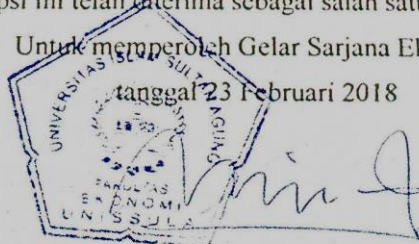 psi ini telah diterima sebagai salah satu
Untuk memperoleh Gelar Sarjana E
tanggal 23 Februari 2018
UNIVERSITAS ISLAM SULTAN AGUNG
FAKULTAS
EKONOMI
UNISSULA